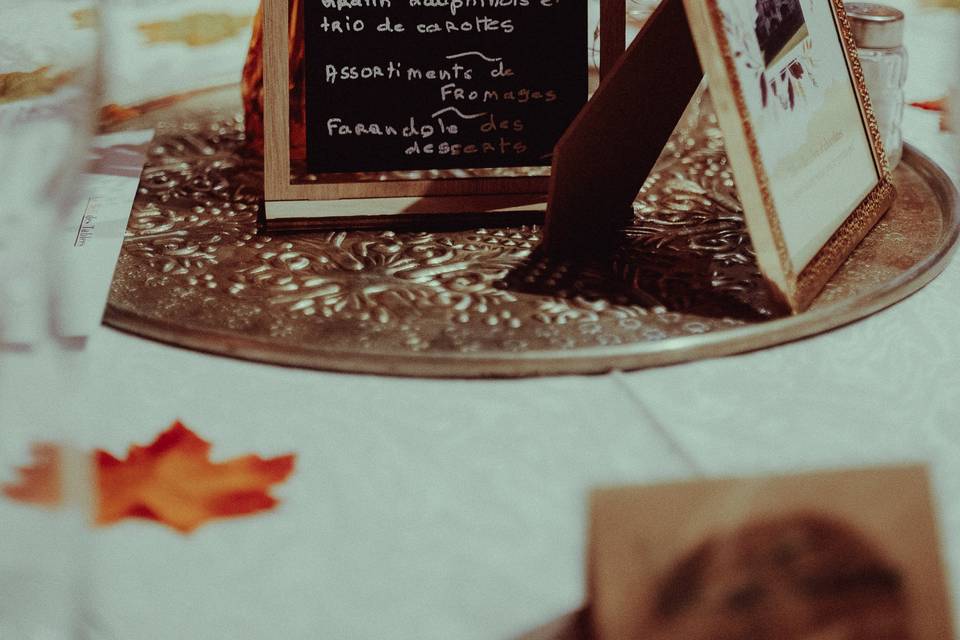 Gratin dauphinois et
trio de carottes
Assortiments de
Fromages
Farandole des
desserts